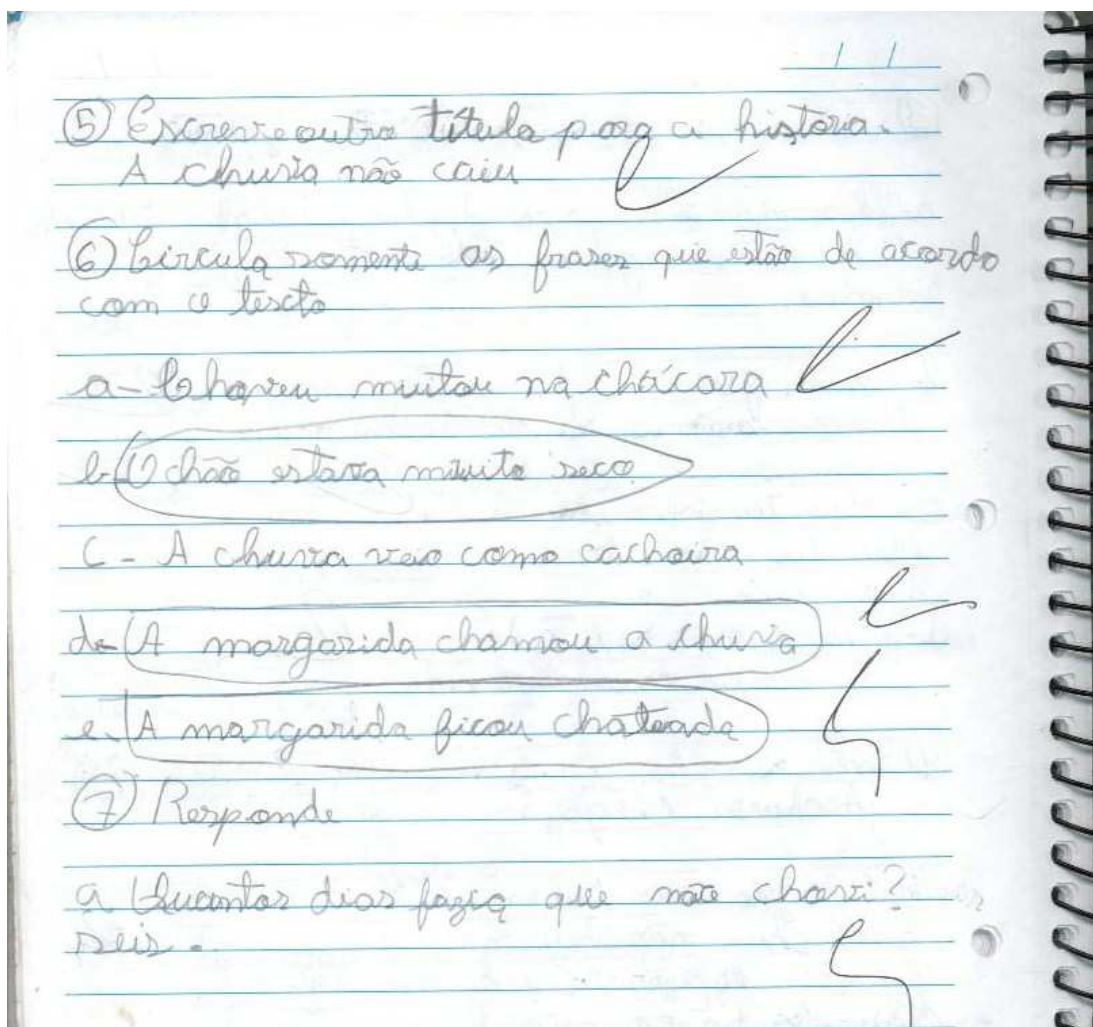 5 Escreve outro titula para a história.
A chuvia não caiu
6 Circula somente as frases que estão de acordo
com o tescto
a - Choveu muitou na chácara
b - O chão estava muiuito seco
C - A chuvia veio como cachoira
d - A margarida chamou a chuvia
e. A margarida ficou chateada
7 Responde
a Quantos dias fazia que não chovi?
seis.